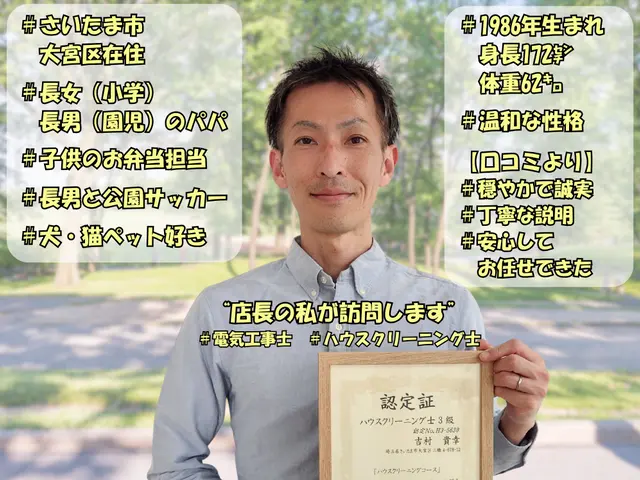 #さいたま市
大宮区在住
#長女(小学)
長男(園児)のパパ
#子供のお弁当担当
#長男と公園サッカー
#犬・猫ペット好き
#1986年生まれ
身長172㌢
体重62㌔
#温和な性格
【口コミより】
#穏やかで誠実
#丁寧な説明
#安心して
お任せできた
"店長の私が訪問します"
#電気工事士 #ハウスクリーニング士
認定証
ハウスクリーニング士3級
認定No.H3-5639
吉村 貴幸
「ハウスクリーニングコース」